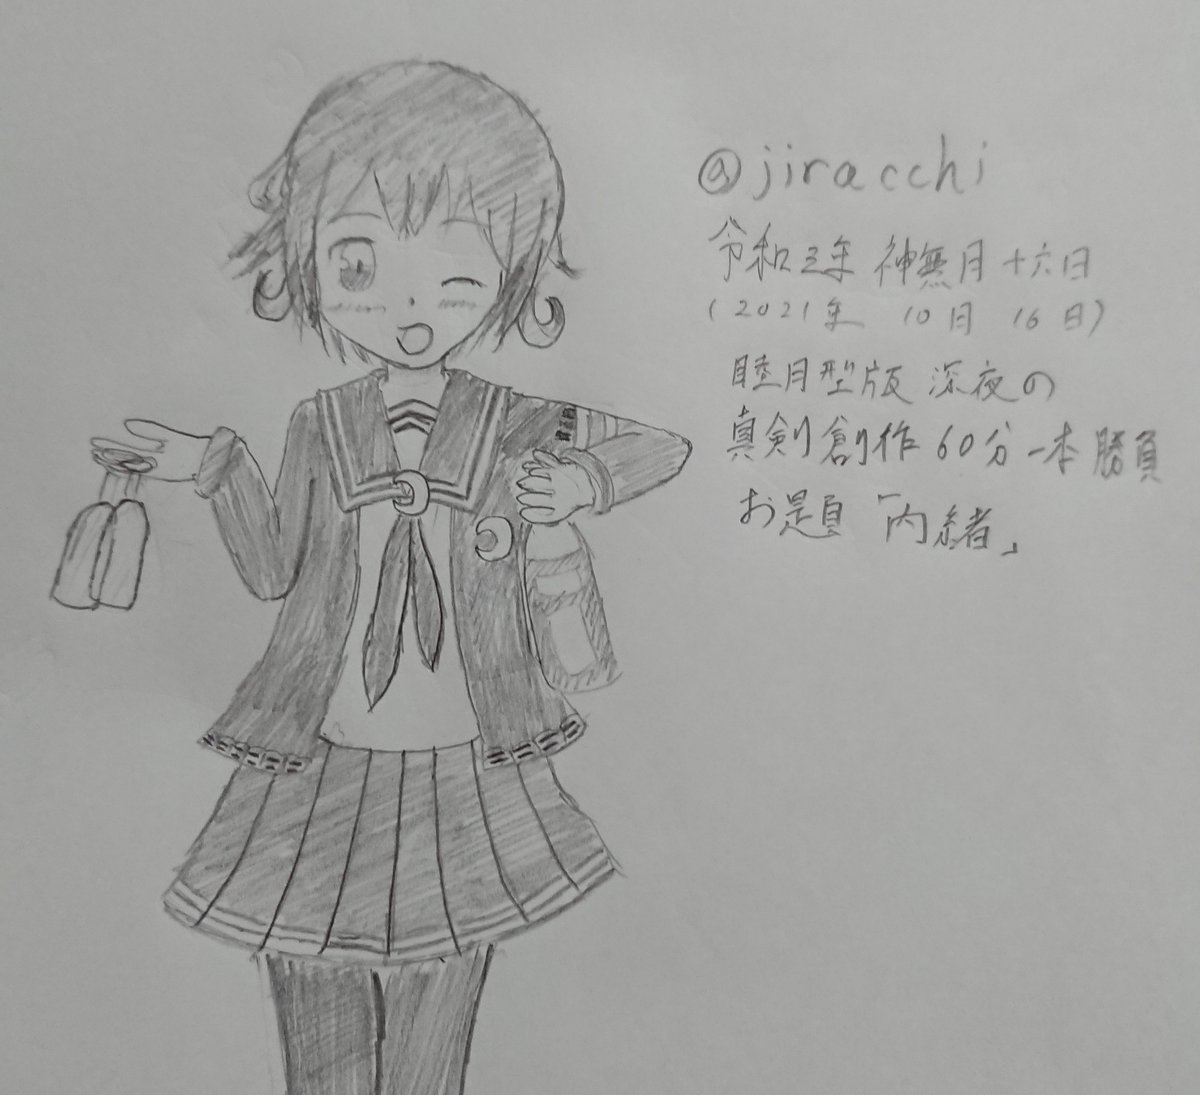 @jiracchi
令和三年 神無月 十六日
(2021年 10月 16日)
睦月型版 深夜の
真剣創作60分一本勝負
お題「内緒」